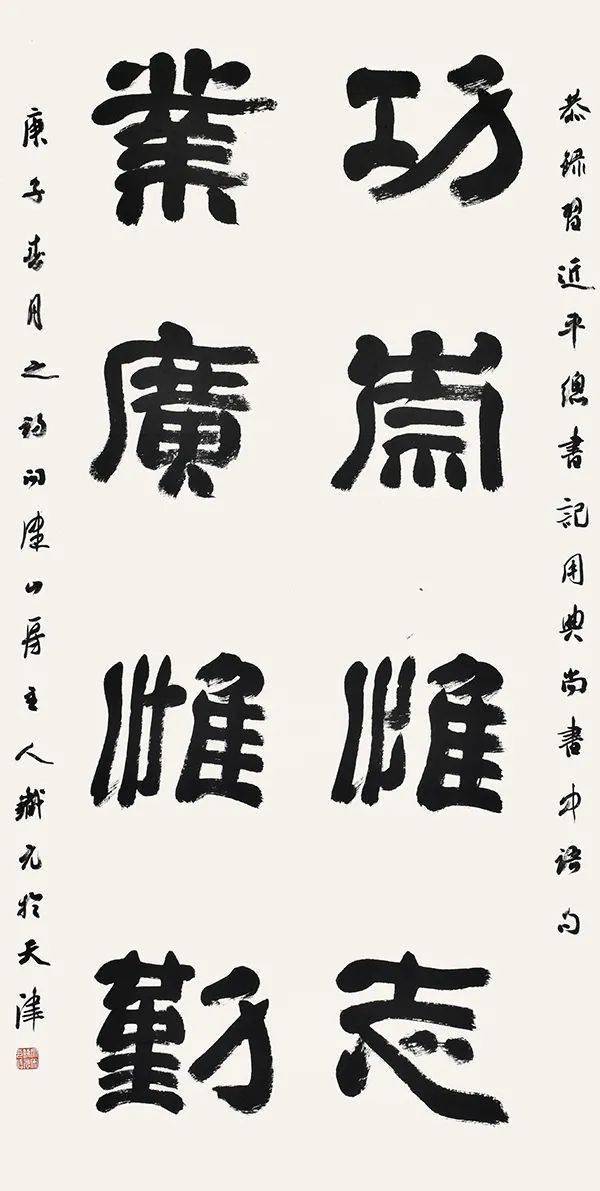 恭録習近平總書記用典尚書中語句
功崇惟志
業廣惟勤
庚子春月之 问津山房主人 元於天津